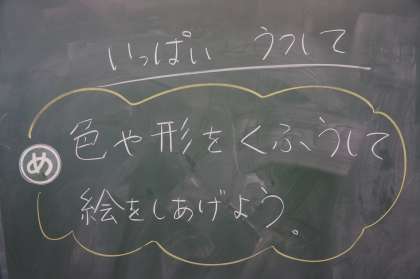 いっぱい うつして
め
色や形をくふうして
絵をしあげよう。